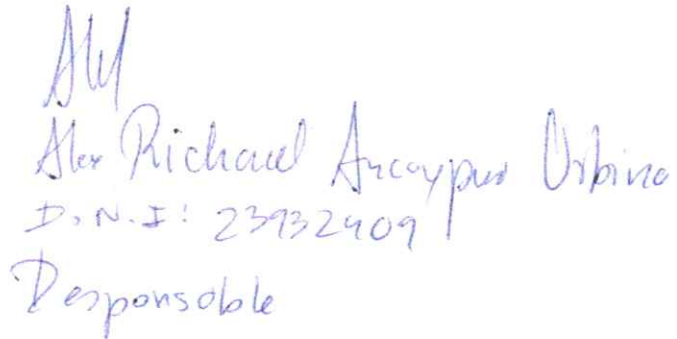 Alex Richard Ancaypuro Urbina
D.N.I: 23932409
Responsable